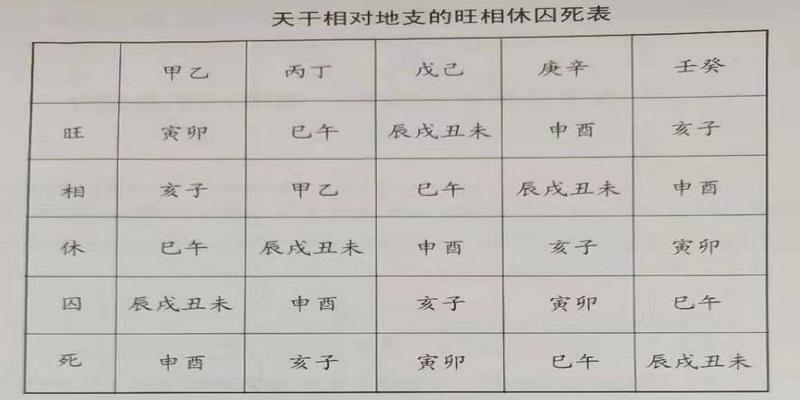 天干相对地支的旺相休囚死表
甲乙 丙丁 戊己 庚辛 壬癸
旺 寅卯 巳午 辰戌丑未 申酉 亥子
相 亥子 甲乙 巳午 辰戌丑未 申酉
休 巳午 辰戌丑未 申酉 亥子 寅卯
囚 辰戌丑未 申酉 亥子 寅卯 巳午
死 申酉 亥子 寅卯 巳午 辰戌丑未